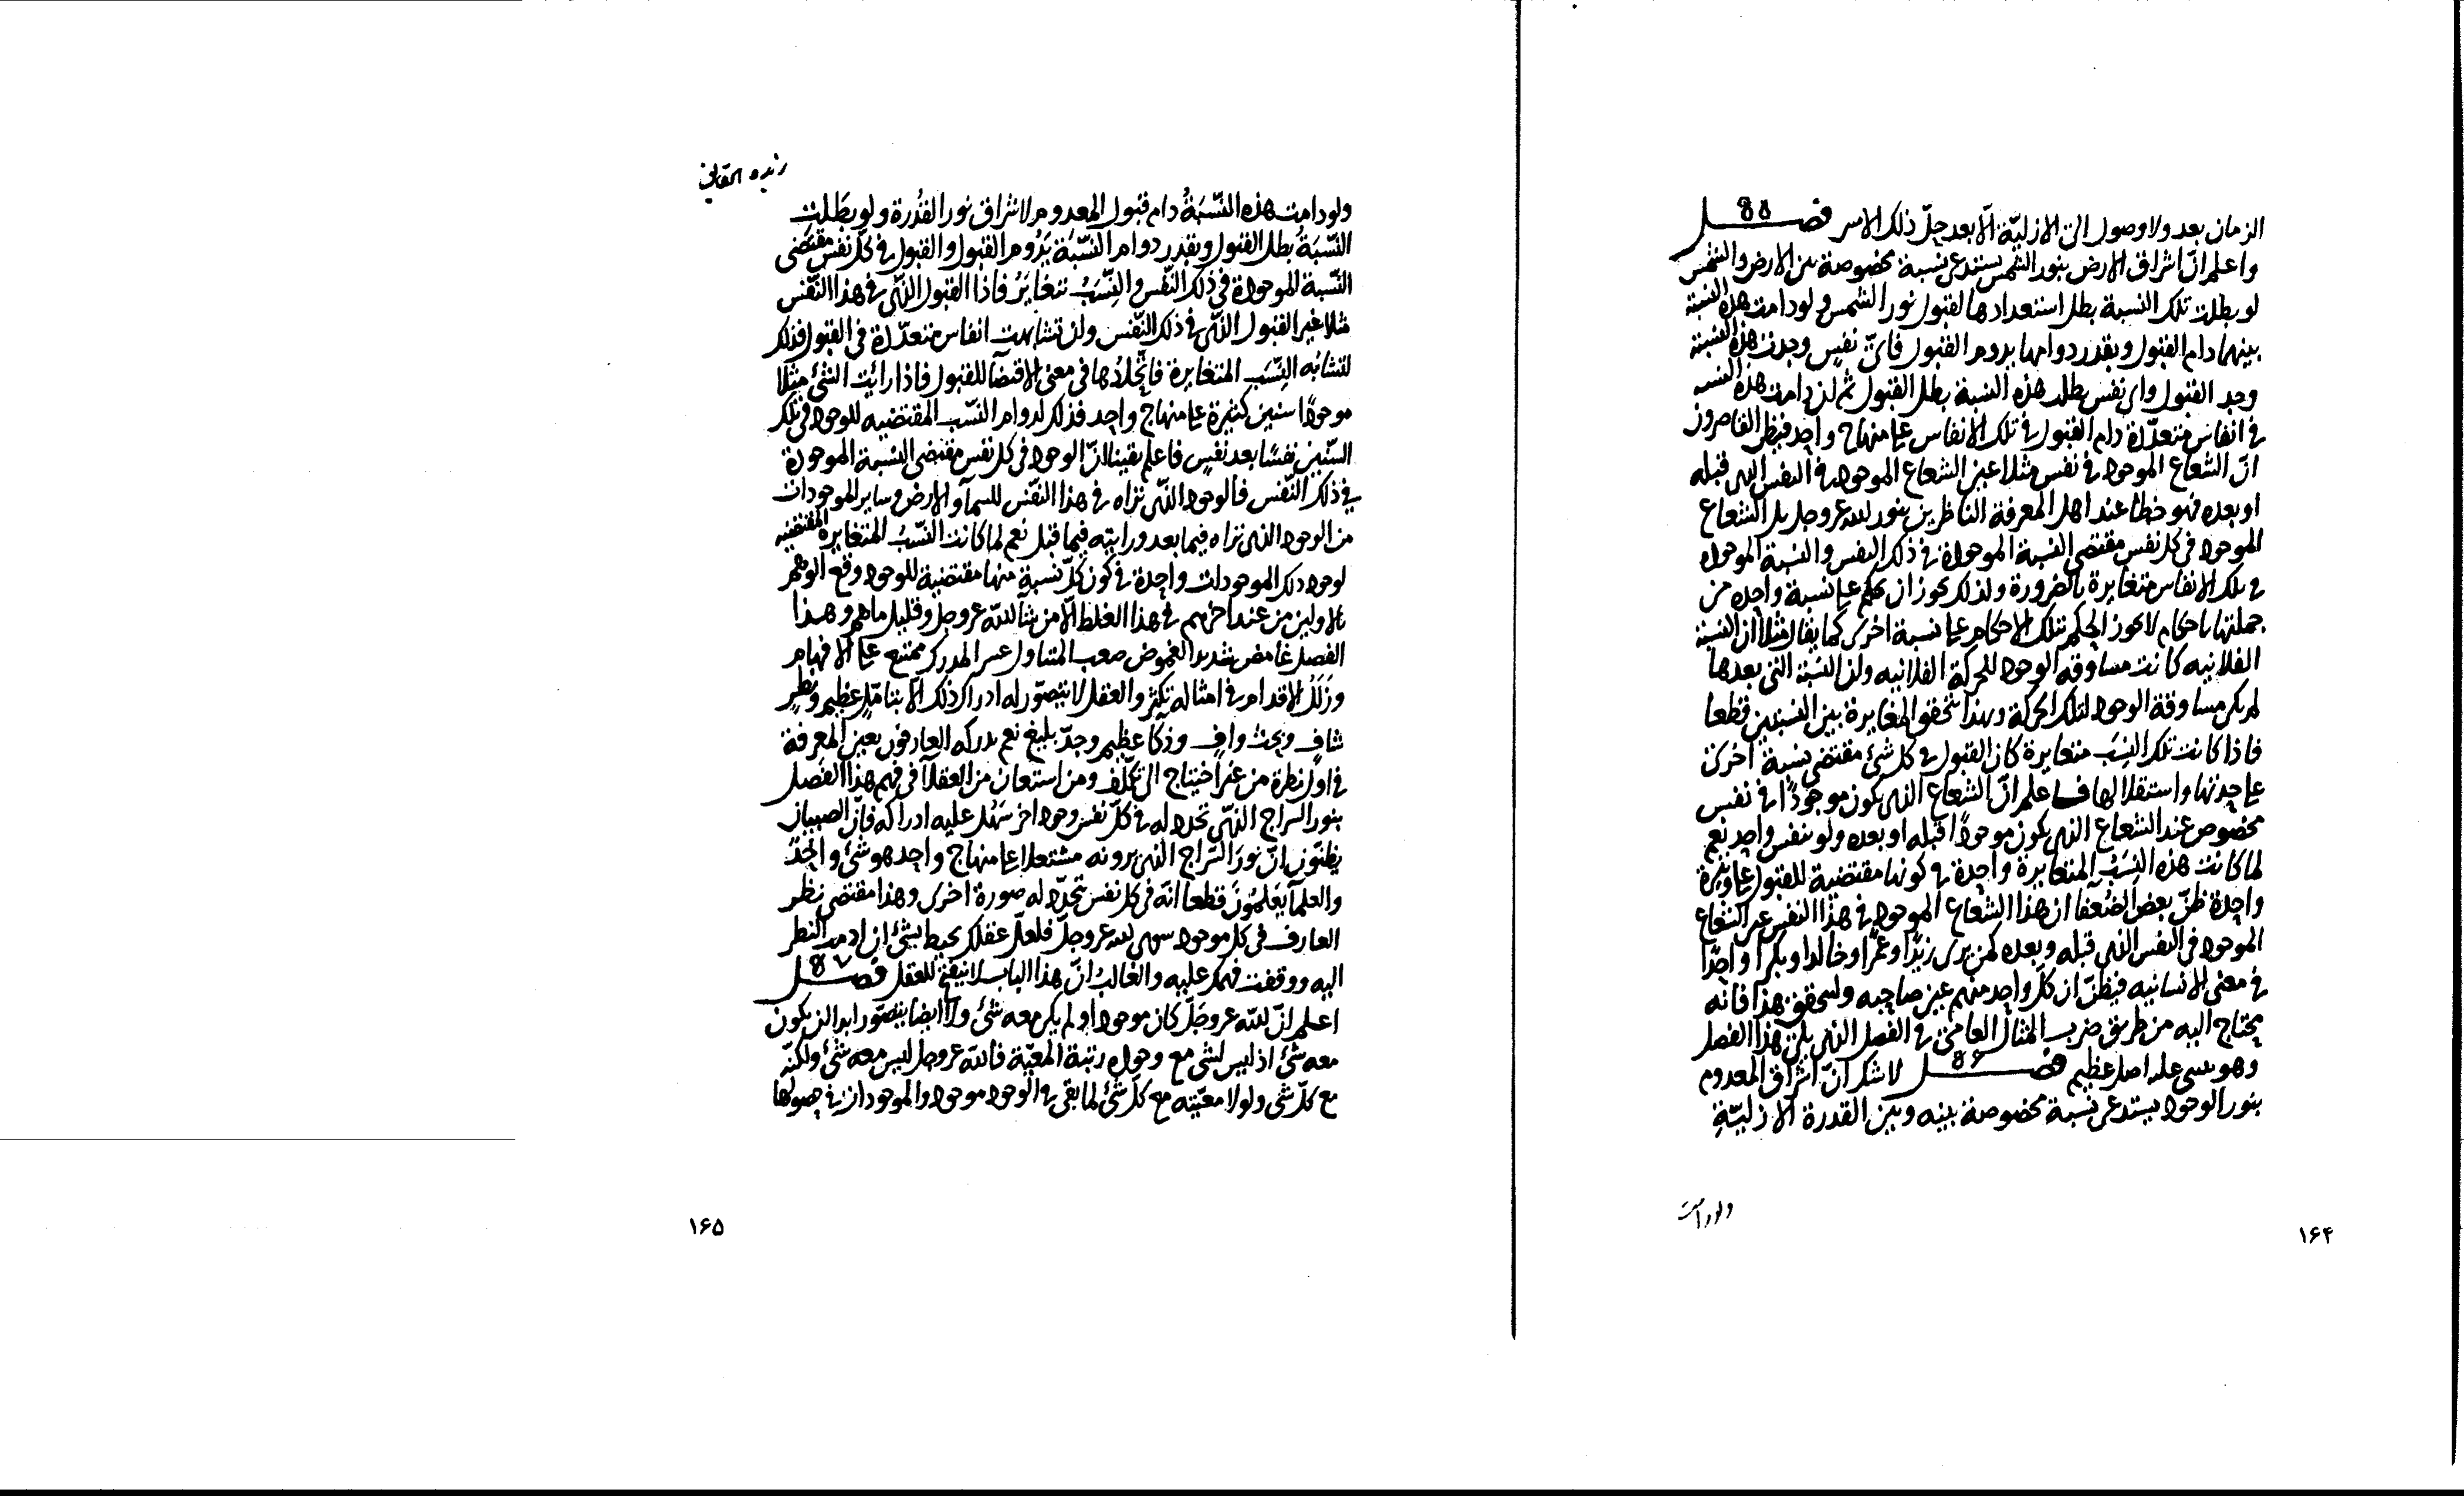 الزمان بعد ولا وصول الى الازليّة الّا بعد جلّ ذلك الامر فصل ۵۵
واعلم انّ اشراق الارض بنور الشمس يستدعى نسبة مخصوصة بين الارض والشمس
لو بطلت تلك النسبة بطل استعدادها لقبول نور الشمس ولو دامت هذه النسبة
بينهما دام القبول وبقدر دوامها يدوم القبول فاىّ نفس وجدت هذه النسبة
وجد القبول واى نفس بطلت هذه النسبة بطل القبول ثم لو دامت هذه النسبة
فى انفاس متعدّدة دام القبول فى تلك الانفاس على منهاج واحد فيظن القاصرون
انّ الشعاع الموجود فى نفس مثلا عين الشعاع الموجود فى النفس الذى قبله
او بعده فهو خطأ عند اهل المعرفة الناظرين بنور الله عزوجل بل الشعاع
الموجود فى كل نفس مقتضى النسبة الموجودة فى ذلك النفس والنسبة الموجودة
فى تلك الانفاس متغايرة بالضرورة ولذلك يجوز ان يحكم على نسبة واحدة من
جملتها باحكام لا يجوز الحكم بتلك الاحكام على نسبة اخرى كما يقال مثلا ان النسبة
الفلانيه كانت مساوقة الوجود للحركة الفلانيه وان النسبة التى بعدها
لم يكن مساوقة الوجود لتلك الحركة وبهذا يتحقق المغايرة بين النسبتين قطعا
فاذا كانت تلك النسب متغايرة كان القبول فى كل شئ مقتضى نسبة اخرى
على حدتها واستقلالها فاعلم انّ الشعاع الذى يكون موجودًا فى نفس
مخصوص عند الشعاع الذى يكون موجودًا قبله او بعده ولو بنفس واحد نعم
لما كانت هذه النسب المتغايرة واحدة فى كونها مقتضية للقبول على وتيرة
واحدة ظنّ بعض الضعفا ان هذا الشعاع الموجود فى هذا النفس عين الشعاع
الموجود فى النفس الذى قبله وبعده كمن يرى زيدًا وعمرًا وخالدا وبكرا واحدًا
فى معنى الانسانيه فيظنّ ان كلّ واحد منهم عين صاحبه وليتحقق هذا فانه
يحتاج اليه من طريق ضرب المثال العامىّ فى الفصل الذى يلى هذا الفصل
وهو يبنى عليه اصل عظيم فصل ۵۶ لا شك انّ اشراق المعدوم
بنور الوجود يستدعى نسبة مخصوصة بينه وبين القدرة الازليّة
ولو دامت
۱۶۴
زبدة الحقايق
ولو دامت هذه النّسبةُ دام قبول المعدوم لاشراق نور القُدرة ولو بطَلت
النّسبَةُ بطل القبول وبقدر دوام النّسبَة يدُوم القبول والقبول فى كلّ نفس مقتضى
النّسبة الموجودة فى ذلك النّفس والنِّسَبُ تتغايَرُ فاذا القبول الذى فى هذا النّفس
مثلا غير القبول الذى فى ذلك النّفس وان تشابهت انفاس متعدّدة فى القبول فذلك
لتشابُه النِّسَب المتغايرة فاتّحادُها فى معنى الاقتضآ للقبول فاذا رايت الشئ مثلا
موجودًا سنين كثيرة على منهاج واحد فذلك لدوام النّسب المقتضيه للوجود فى تلك
السّنين نفسًا بعد نفسٍ فاعلم يقينا انّ الوجود فى كل نفس مقتضى النسبة الموجودة
فى ذلك النّفس فالوجود الذى تراه فى هذا النّفس للسمآ والارض وساير الموجودات
من الوجود الذى تراه فيما بعد ورايته فيما قبل نعم لما كانت النّسَبُ المتغايرة المقتضيه
لوجود تلك الموجودات واحدة فى كون كلّ نسبة منها مقتضية للوجود وقع الوهم
للاولين من عند اخرهم فى هذا الغلط الّا من شآ الله عزوجل وقليل ما هم وهذا
الفصل غامض شديد الغموض صعب المتناول عسر المدرك ممتنع على الافهام
وزَلَلُ الاقدام فى امثاله تكثر والعقل لا يتصوّر له ادراك ذلك الّا بتامّلٍ عظيم ونظرٍ
شافٍ وبحث وافٍ وذكآ عظيم وجدّ بليغ نعم يدركه العارفون بعين المعرفة
فى اول نظرة من غير احتياج الى تكلّف ومن استعان من العقلآ فى فهم هذا الفصل
بنور السراج الذى تجدد له فى كلّ نفس وجود اخر سَهُل عليه ادراكه فانّ الصبيان
يظنّون انّ نورَ السّراج الذى يرونه مشتعلا على منهاج واحد هو شئ واحدٌ
والعلمآ يعلمُونَ قطعا انّه فى كل نفس تتجدّد له صورة اخرى وهذا مقتضى نظر
العارف فى كل موجود سوى الله عزوجلّ فلعلّ عقلك يحيط بشئ ان ادمت النظر
اليه ووقفت فهمك عليه والغالبُ انّ هذا الباب لا ينفتح للعقل فصل ۵۷
اعلم انّ الله عزوجَلّ كان موجودا ولم يكن معه شئ ولا ايضا يتصوّر ابدا ان يكون
معه شئ اذ ليس لشئ مع وجوده رتبة المعيّة فالله عزوجل ليس معه شئ ولكنّه
مع كلّ شئ ولولا معيّته مع كلّ شئ لما بقى فى الوجود موجود والموجودات فى حصولها
۱۶۵